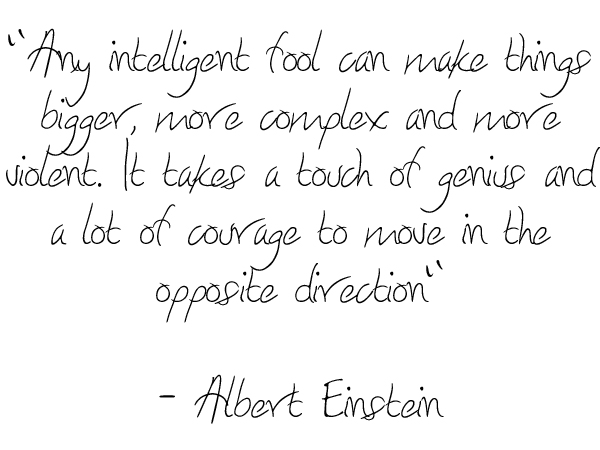 "Any intelligent fool can make things
bigger, more complex and more
violent. It takes a touch of genius and
a lot of courage to move in the
opposite direction"
- Albert Einstein